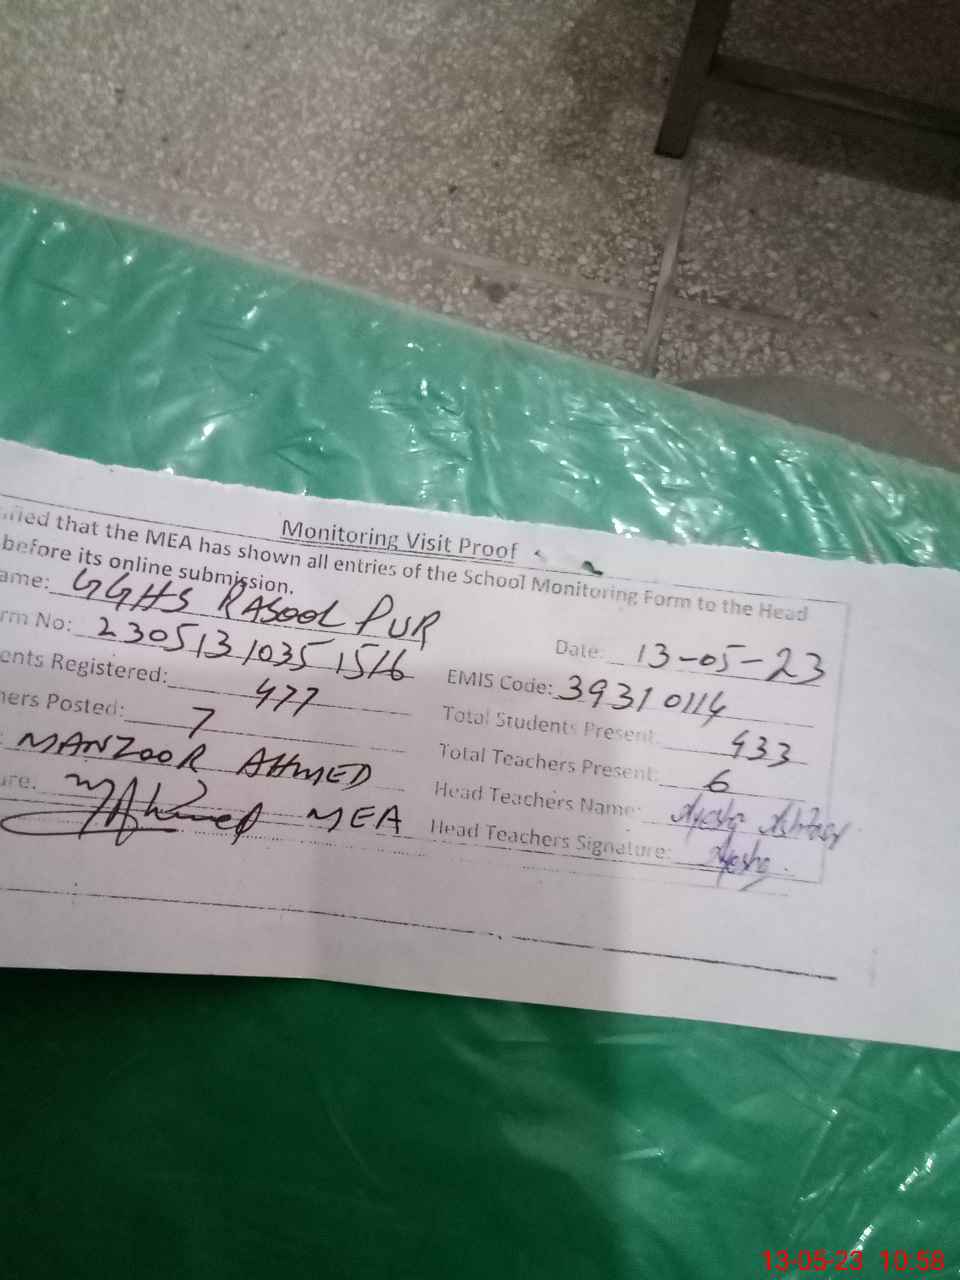 Monitoring Visit Proof
ified that the MEA has shown all entries of the School Monitoring Form to the Head
before its online submission.
ame: GGHS RASOOL PUR
Date: 13-05-23
rm No: 2305131035 1516
EMIS Code: 39310114
ents Registered: 477
Total Students Present: 433
ners Posted: 7
Total Teachers Present: 6
: MANZOOR AHMED
Head Teachers Name: Ayesha
ure. MAhmed MEA
Head Teachers Signature: Ayesha.
13-05-23 10:58